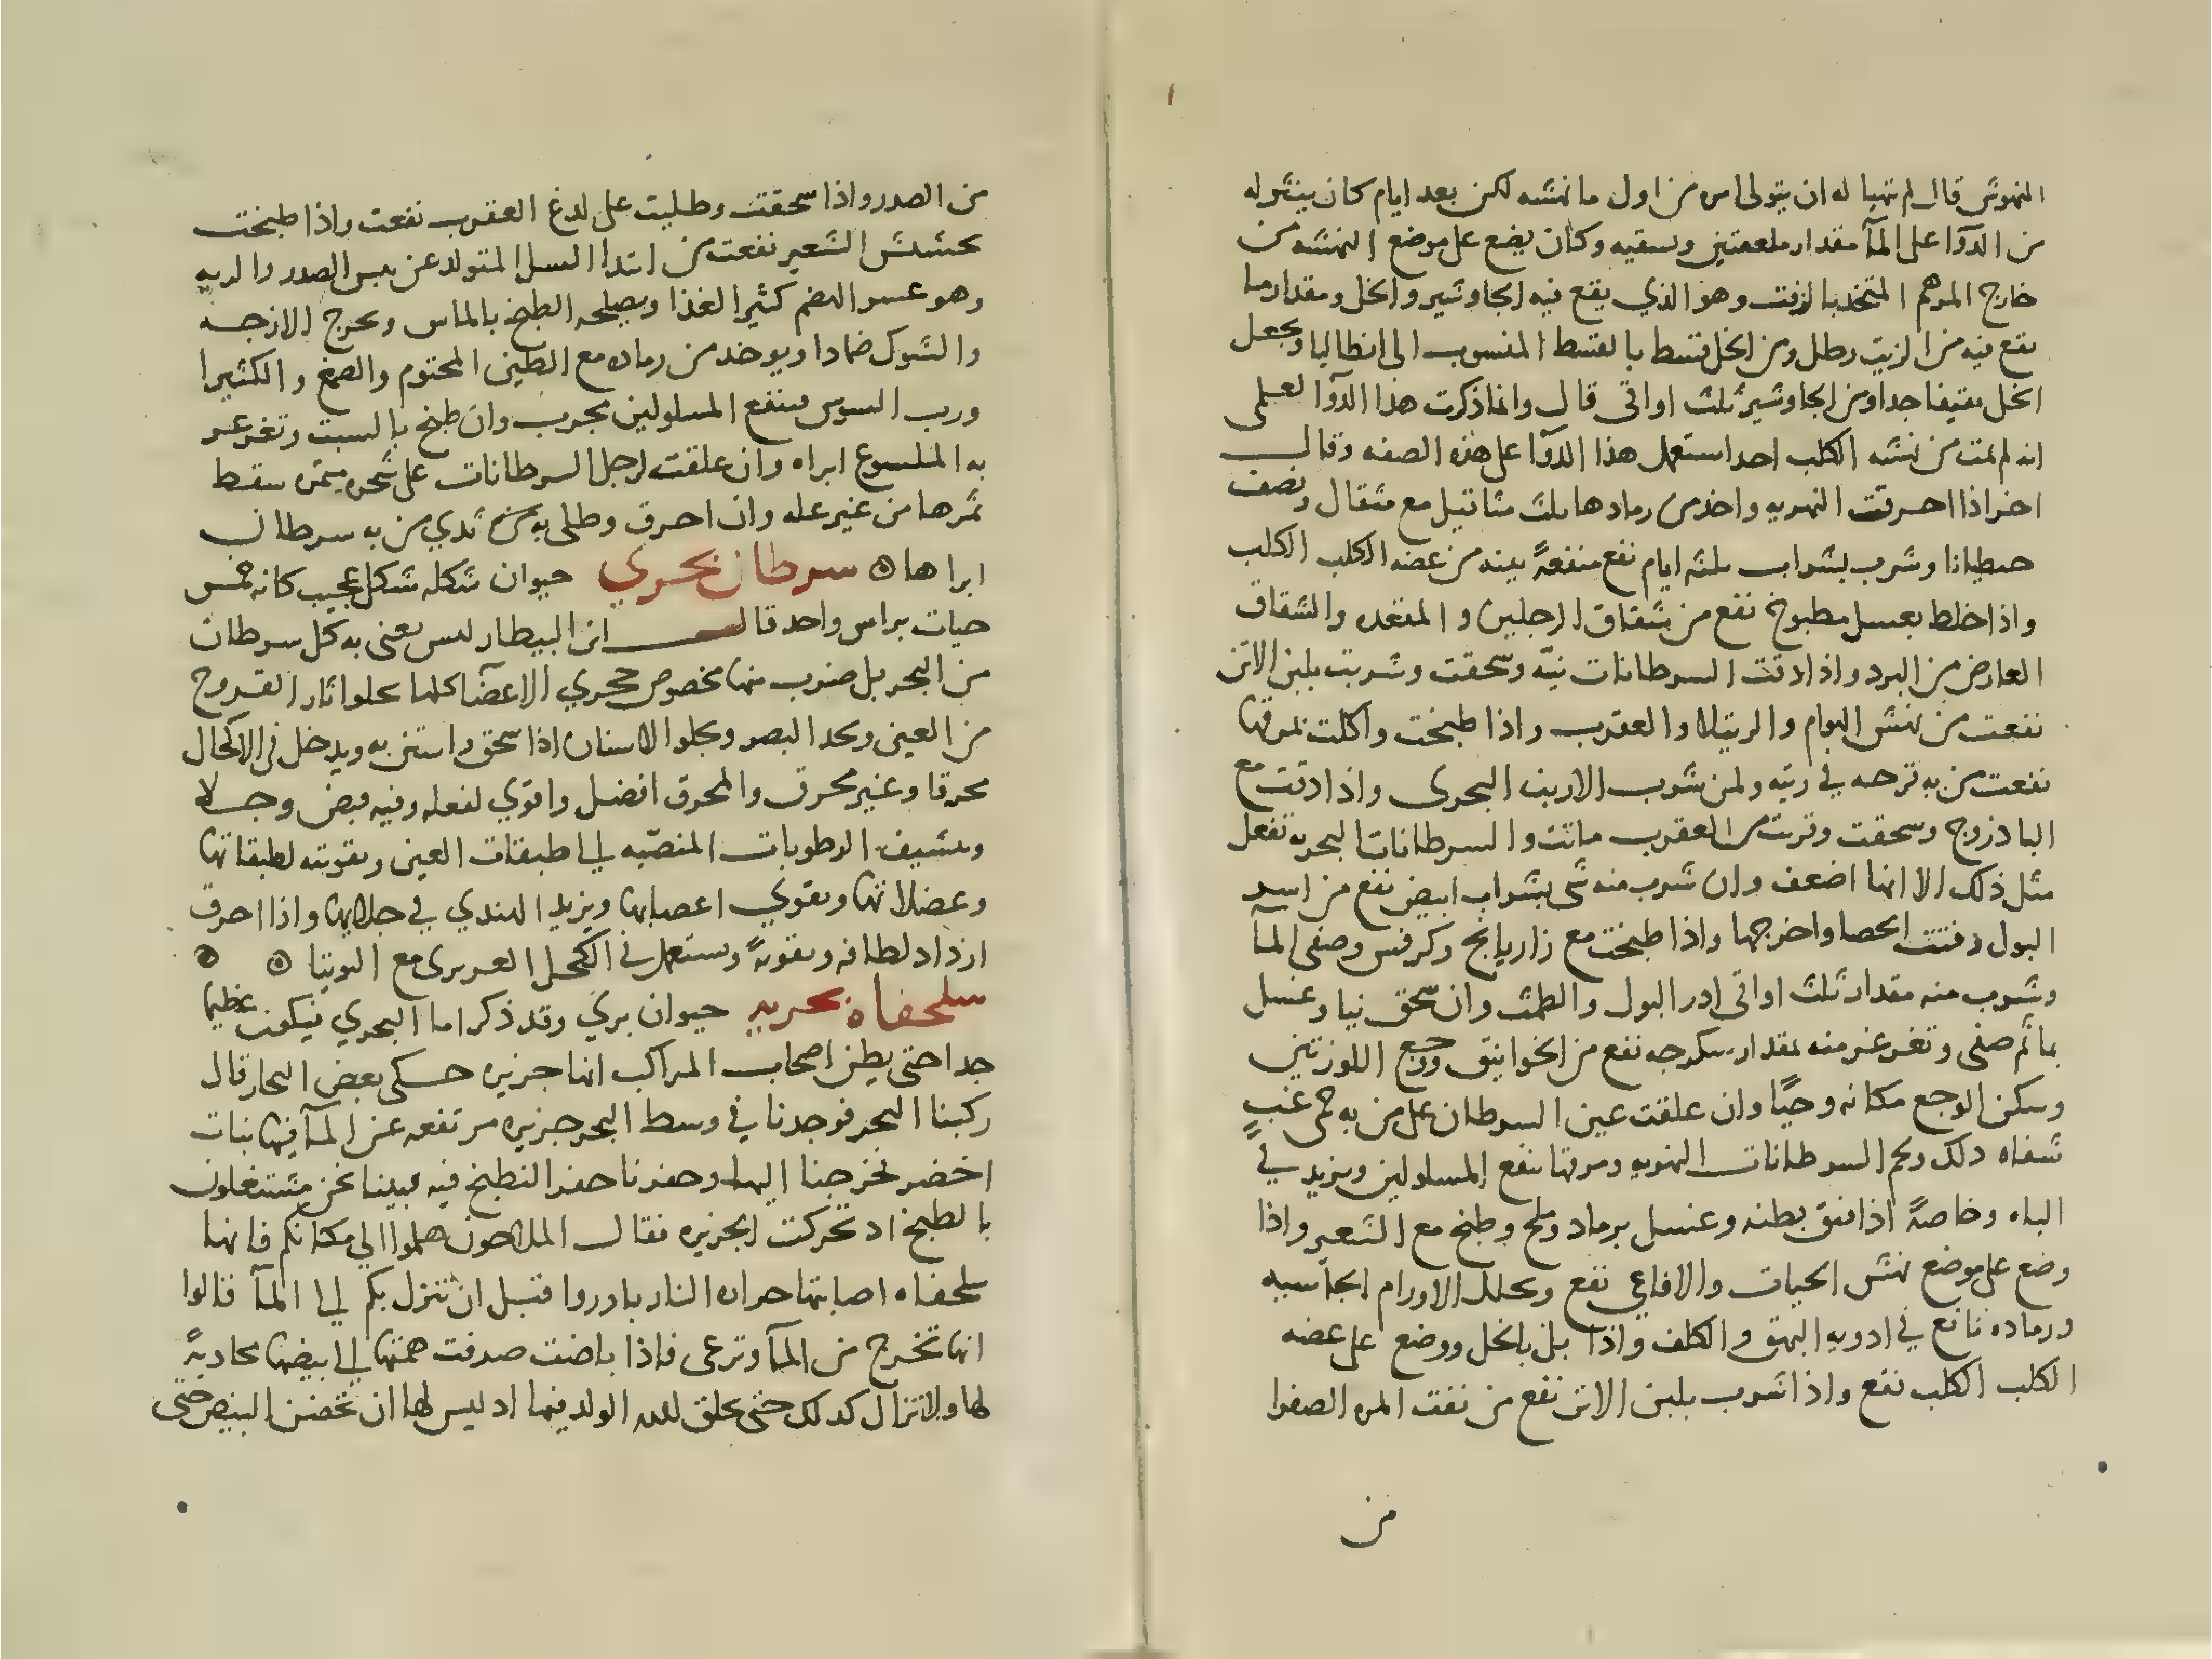 المنهوش قال لم يتهيا له ان يتولى امره من اول ما نهشه لكن بعد ايام كان ينثر له
من الدوآ على المآ مقدار ملعقتين ويسقيه وكان يضع على موضع النهشه من
خارج المرهم المتخذ بالزفت وهو الذي يقع فيه الجاوشير والخل ومقدار ما
يقع فيه من الزيت رطل ومن الخل قسط بالقسط المنسوب الى انطاليا ويجعل
الخل ثقيفا جدا ومن الجاوشير ثلث اواقى قال وانما ذكرت هذا الدوآ لعلمى
انه لم يمت من نهشه الكلب احد استعمل هذا الدوآ على هذه الصفه وقال
اخر اذا احرقت النهريه واخذ من رمادها ثلث مثاقيل مع مثقال ونصف
حنطيانا وشرب بشراب ثلثه ايام نفع منفعةً بينه من عضه الكلب الكلب
واذا خلط بعسل مطبوخ نفع من شقاق الرجلين و المقعده والشقاق
العارض من البرد واذا دقت السرطانات نيّه وسحقت وشربت بلبن الاتن
نفعت من نهش الهوام والرتيلا والعقرب واذا طبخت واكلت بمرقها
نفعت من به قرحه في ريته ولمن شرب الارنب البحرى واذا دقت مع
الباذروج وسحقت وقربت من العقرب ماتت والسرطانات البحريه تفعل
مثل ذلك الا انها اضعف وان شرب منه شى بشراب ابيض نفع من اسر
البول وفتت الحصا واخرجها واذا طبخت مع رازيانج وكرفس وصفى المآ
وشرب منه مقدار ثلث اواقى ادر البول والطمث وان سحق نيا وغسل
بما ثم صفى وتغرغر منه بمقدار سكرجه نفع من الخوانيق ووجع اللوزتين
وسكن الوجع مكانه وحيًا وان علقت عين السرطان على من به حمى غبٍ
شفاه ذلك ولحم السرطانات النهريه ومرقها ينفع المسلولين ويزيد في
الباه وخاصةً اذا شق بطنه وغسل برماد وملح وطبخ مع الشعير واذا
وضع على موضع نهش الحيات والافاعي نفع ويحلل الاورام الجاسيه
ورماده نافع في ادويه البهق والكلف واذا بل بالخل ووضع على عضه
الكلب الكلب نفع واذا شرب بلبن الاتن نفع من نفث المره الصفرا
من
من الصدر واذا سحقت وطليت على لدغ العقرب نفعت واذا طبخت
بحشيش الشعير نفعت من ابتدا السل المتولد عن يبس الصدر والريه
وهو عسر الهضم كثير الغذا ويصلحه الطبخ بالماس ويخرج الازجه
والشوك ضمادا ويوخذ من رماده مع الطين المختوم والصمغ والكثيرا
ورب السوس فينفع المسلولين مجرب وان طبخ بالسبت وتغرغر
به الملسوع ابراه وان علقت ارجل السرطانات على شجره مثمره سقط
ثمرها من غير عله وان احرق وطلى به ثدي من به سرطان
ابراها ۞ سرطان بحري حيوان شكله شكل عجيب كانه خمس
حيات براس واحد قال ابن البيطار ليس يعنى به كل سرطان
من البحر بل ضرب منها مخصوص حجري الاعضآ كلها يجلو اثار القروح
من العين ويحد البصر ويجلو الاسنان اذا سحق واستن به ويدخل في الاكحال
محرقا وغير محرق والمحرق افضل واقوي لفعله وفيه قبض وجلا
وتنشيف الرطوبات المنصّبه الي طبقات العين وتقويته لطبقاتها
وعضلاتها ويقوي اعصابها ويزيد الهندي في جلايها واذا احرق
ازداد لطافه وتقويةً ويستعمل في الكحل العزيزى مع التوتيا ۞ ۞
سلحفاه بحريه حيوان بري وقد ذكر اما البحري فيكون عظيما
جدا حتى يظن اصحاب المراكب انها جزيره حكى بعض التجار قال
ركبنا البحر فوجدنا في وسط البحر جزيره مرتفعه عن المآ فيها نبات
اخضر فخرجنا اليها وحفرنا حفرا لنطبخ فيه فبينا نحن مشتغلون
بالطبخ اذ تحركت الجزيره فقال الملاحون هلموا الي مكانكم فانها
سلحفاه اصابتها حراره النار بادروا قبل ان تنزل بكم الي المآ قالوا
انها تخرج من المآ وترعى فاذا باضت صرفت همتها الي بيضها محاذيةً
لها ولا تزال كذلك حتى يخلق لله الولد فيها اذ ليس لها ان تحضن البيض حتى